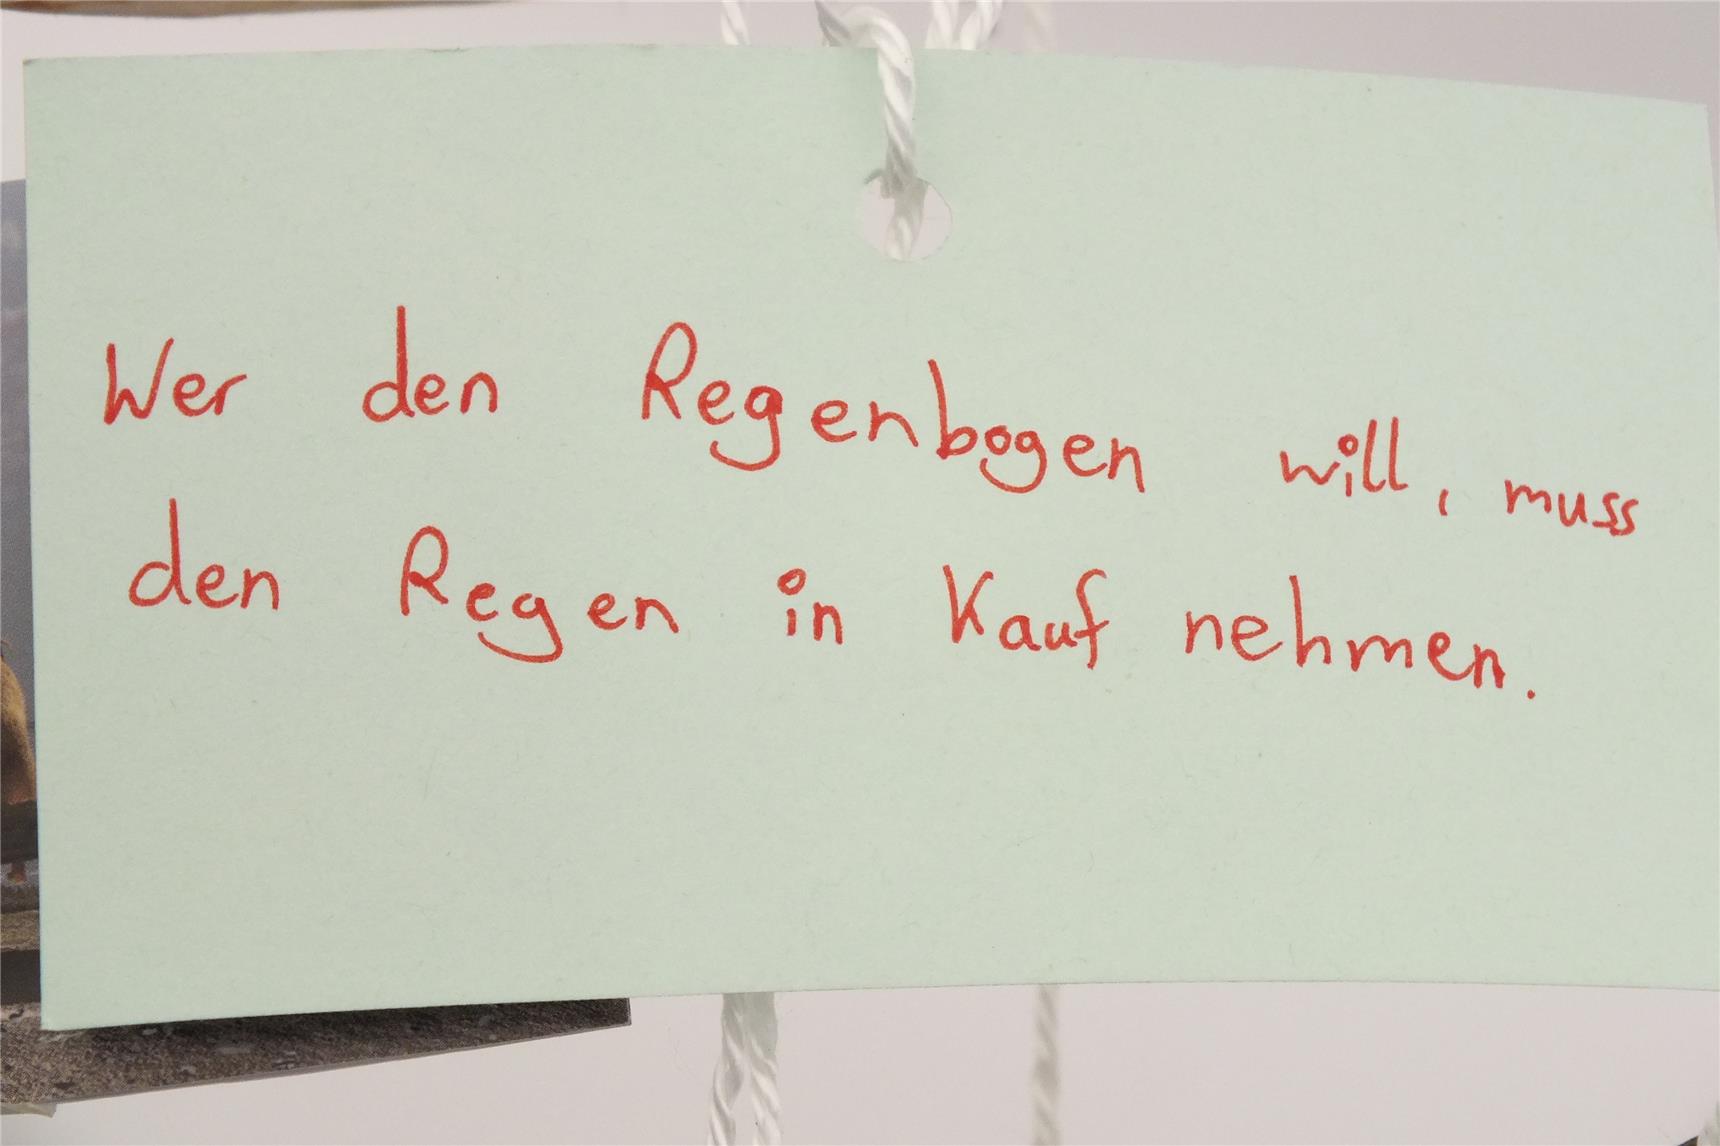 Wer den Regenbogen will, muss
den Regen in Kauf nehmen.